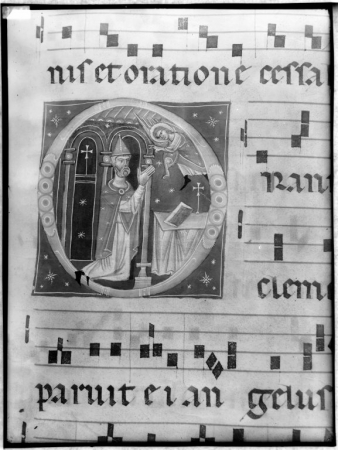 nis et oratione cessa
O
RAN
clem
paruit ei an gelus